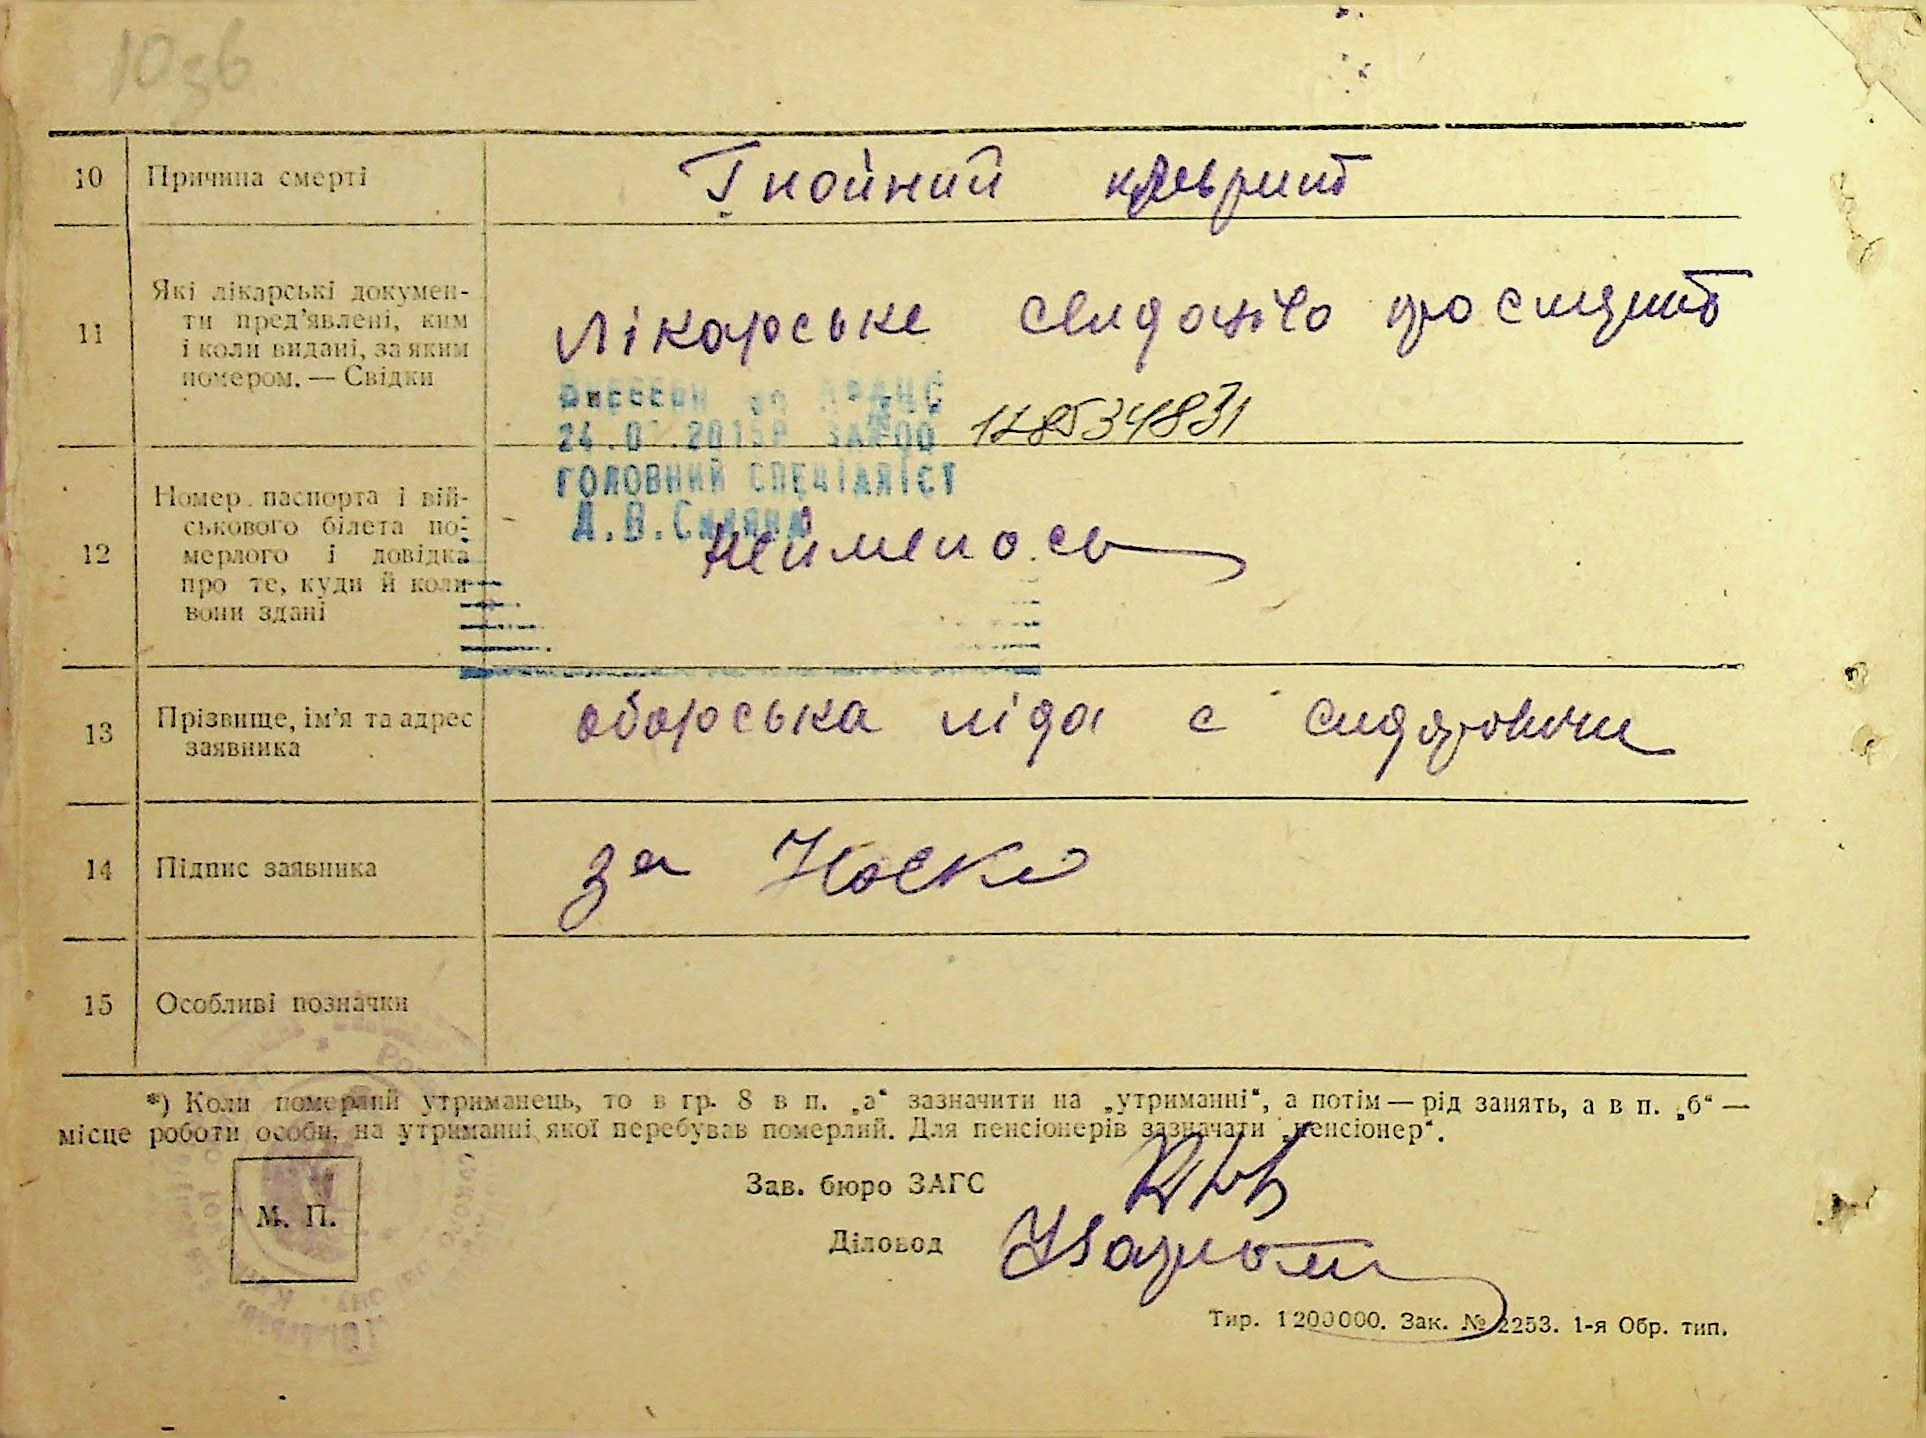 10зв
10 Причина смерті Гнойний плеврит
11 Які лікарські докумен-
ти пред'явлені, ким
і коли видані, за яким
номером. — Свідки
Лікарське про смерть
24.0 .2015р
178534831
ГОЛОВНИЙ СПЕЦІАЛІСТ
12 Номер паспорта і вій-
ськового білета по-
мерлого і довідка
про те, куди й коли
вони здані
неимелось
13 Прізвище, ім'я та адрес
заявника
оборська ліда с сидоровичи
14 Підпис заявника за
15 Особливі позначки
*) Коли померлий утриманець, то в гр. 8 в п. „а“ зазначити на „утриманні“, а потім — рід занять, а в п. „б“ —
місце роботи особи, на утриманні якої перебував померлий. Для пенсіонерів зазначати „пенсіонер“.
М. П.
Зав. бюро ЗАГС
Діловод
Тир. 1200000. Зак. № 2253. 1-я Обр. тип.